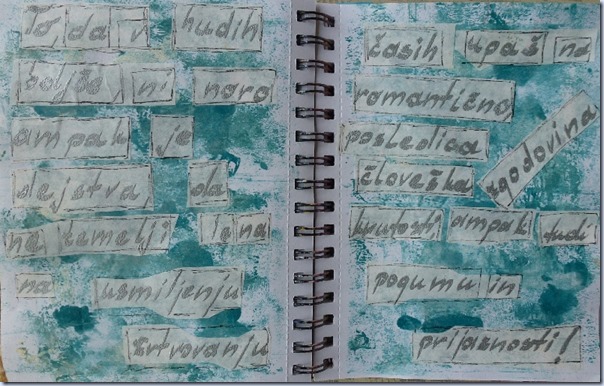 To da v hudih časih upaš na
boljše ni naro romantično
ampak je posledica
dejstva da človeška zgodovina
ne temelji le na krutosti ampak tudi
na usmiljenju pogumu in
žrtvovanju prijaznosti!